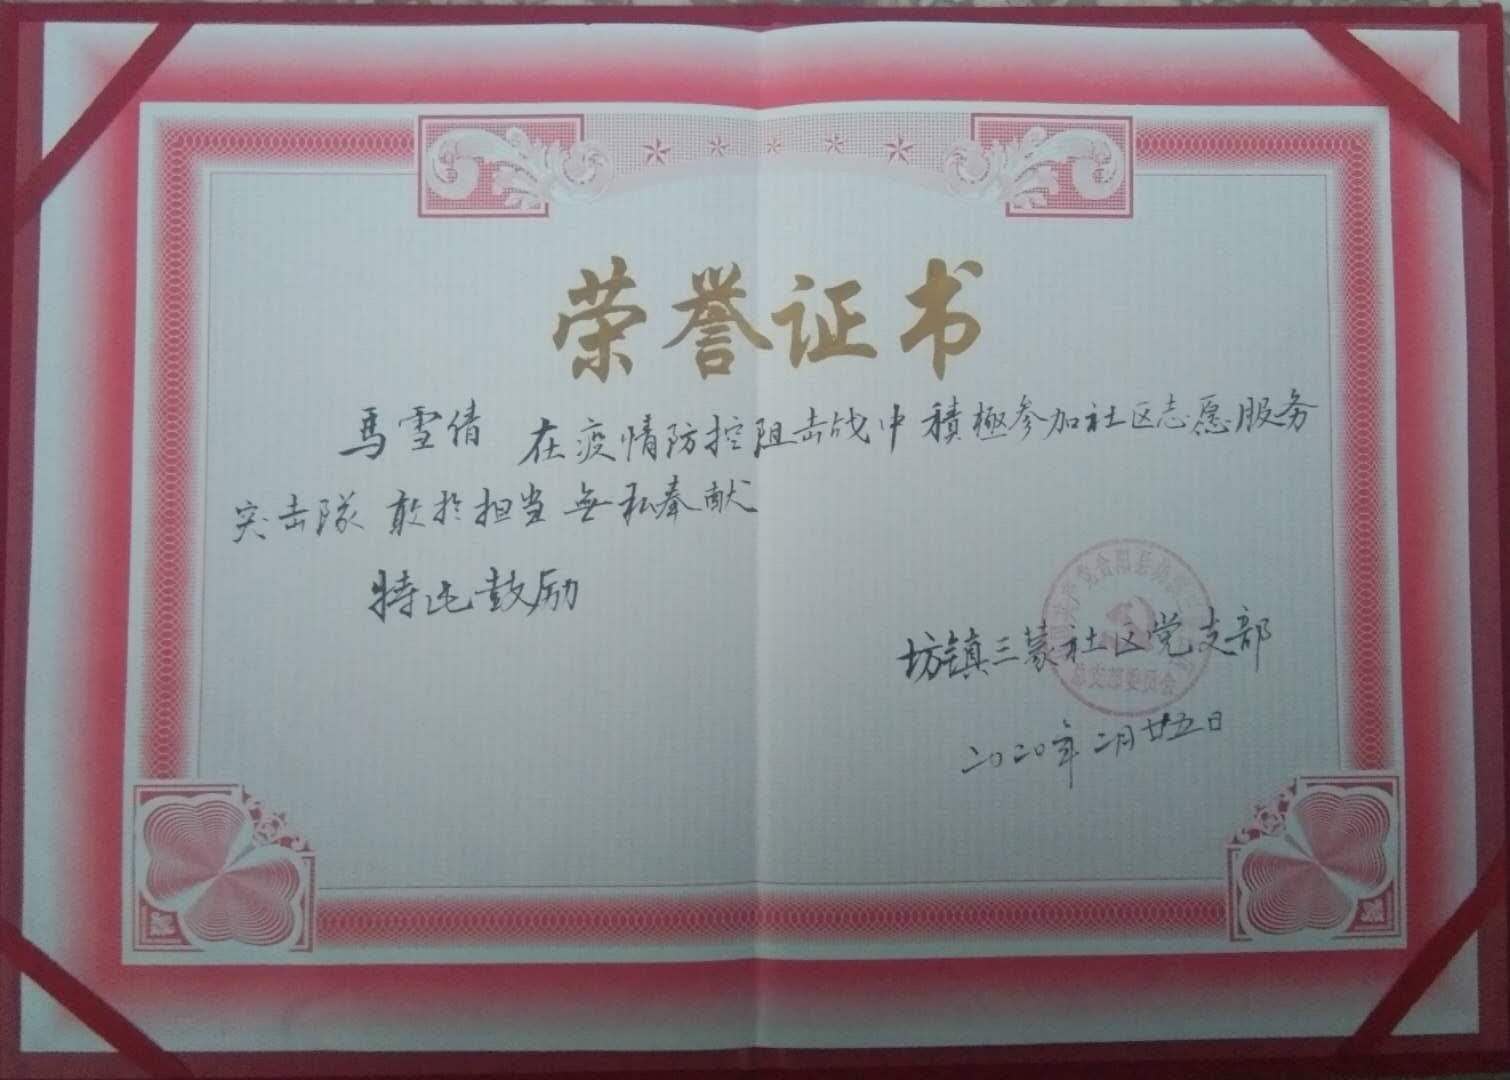 荣誉证书
馬雪倩 在疫情防控阻击战中積極参加社区志愿服务
突击隊 敢於担当 無私奉献
特此鼓励
坊镇三蒙社区党支部
二〇二〇年二月廿五日